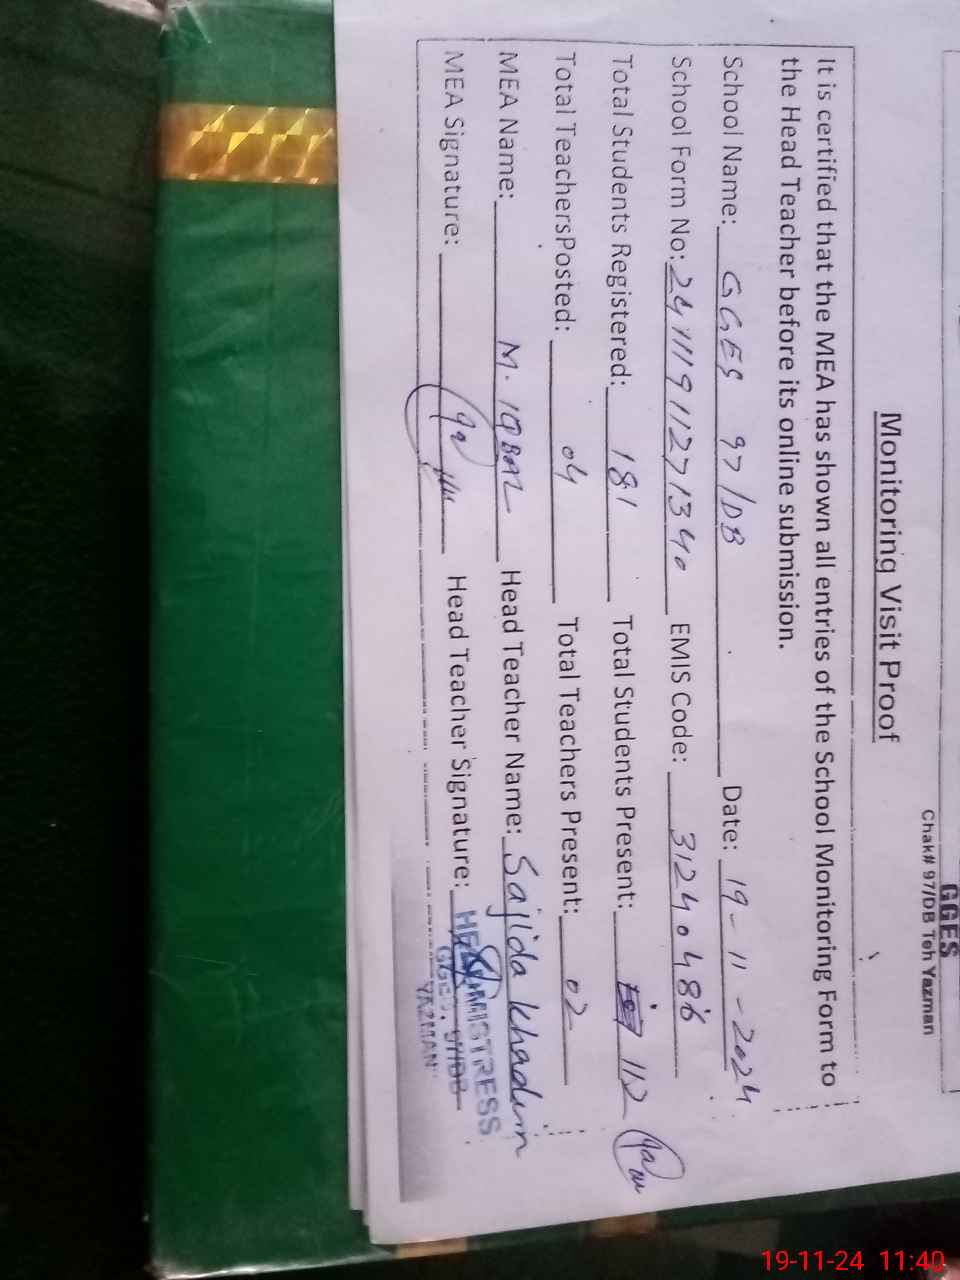 GGES
Chak# 97/DB Teh Yazman
Monitoring Visit Proof
It is certified that the MEA has shown all entries of the School Monitoring Form to
the Head Teacher before its online submission.
School Name: GGES 97/DB Date: 19-11-2024
School Form No: 24111911271340 EMIS Code: 31240486
Total Students Registered: 181 Total Students Present: 112
Total TeachersPosted: 04 Total Teachers Present: 02
MEA Name: M. IQBAL Head Teacher Name: Sajida Khadum
MEA Signature: Head Teacher Signature:
HEADMISTRESS
GGES, 97/DB
YAZMAN
19-11-24 11:40